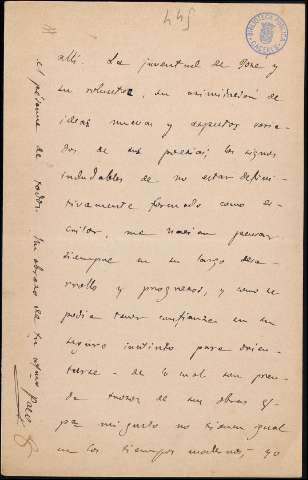 445
BIBLIOTECA PÚBLICA
CACERES
allí. La juventud de Jose y
su voluntad, su asimilación de
ideas nuevas y aspectos varia-
dos de sus poesías, los signos
indudables de no estar defini-
tivamente formado como es-
critor, me hacían pensar
siempre en su largo desa-
rrollo y progresos, y como se
podía tener confianza en su
seguro instinto para orien-
tarse - de lo cual son pren-
da trozos de sus obras q/.
pa mi gusto no tienen igual
en los tiempos modernos, yo
el pésame de todos. Un abrazo de tu
Paco